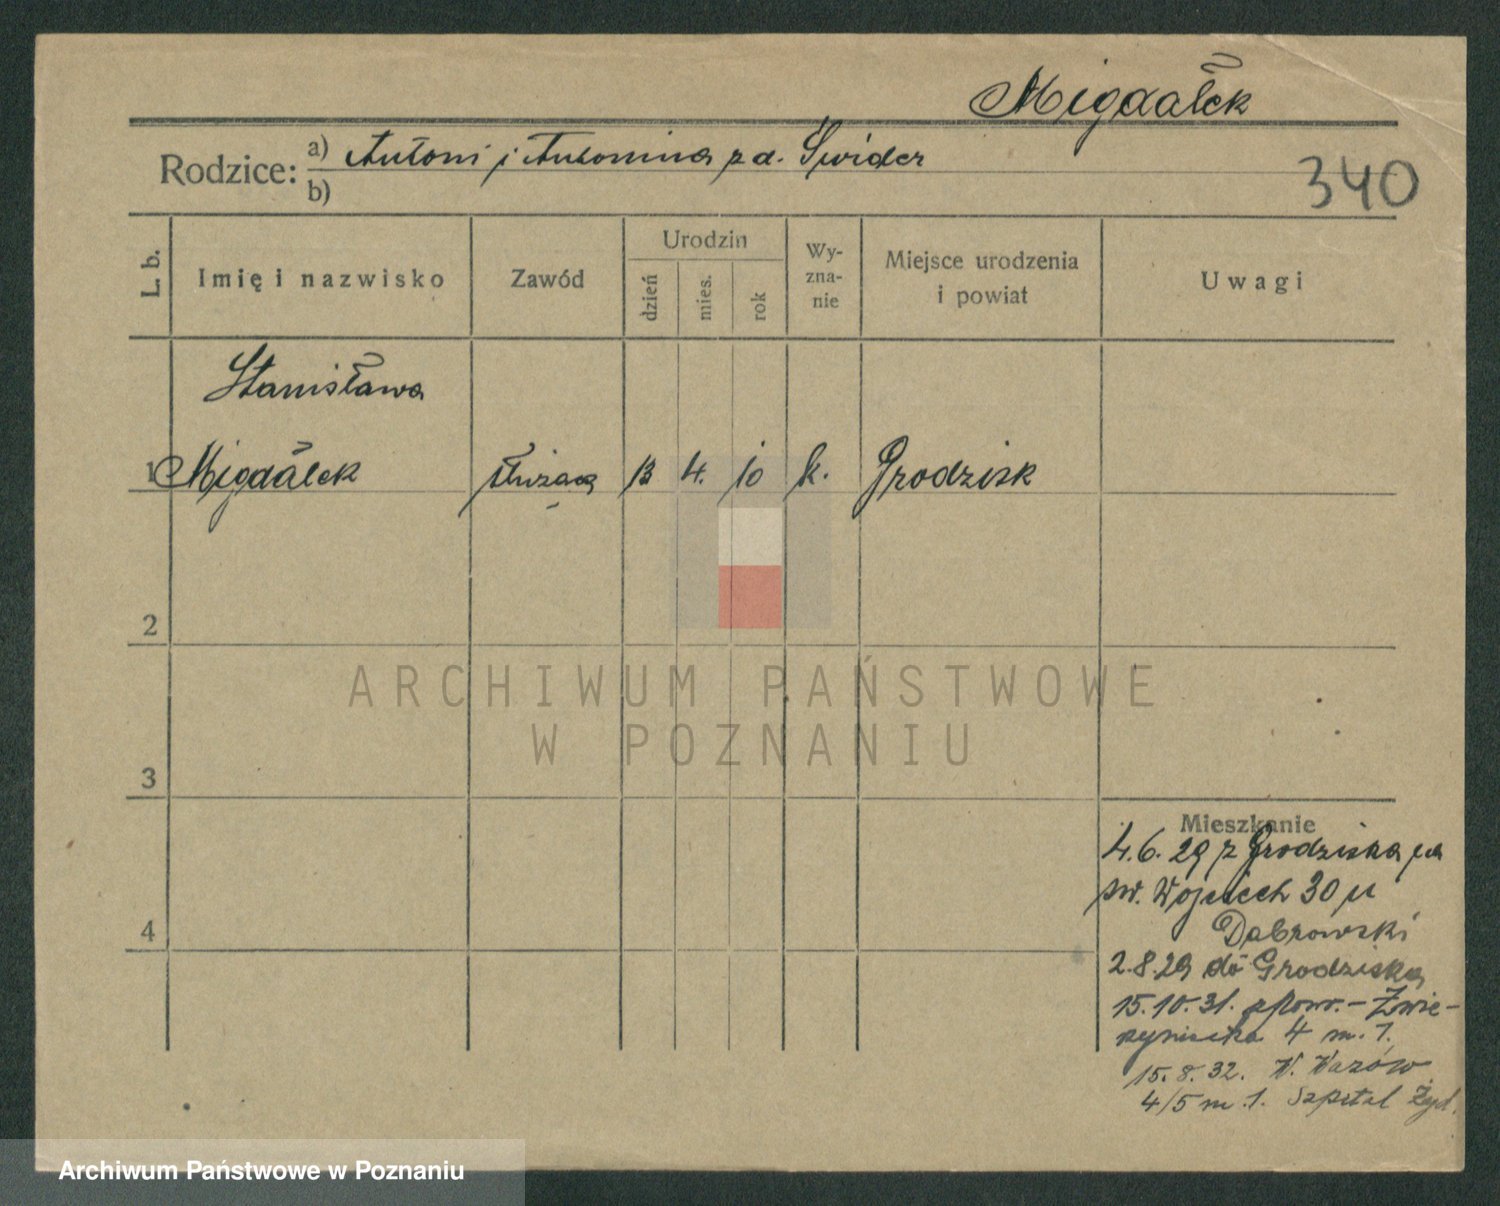 Migdałek
Rodzice: a) Antoni i Antonina z d. Świder
b)
340
L. b.
Imię i nazwisko
Zawód
Urodzin
dzień
mies.
rok
Wy-
zna-
nie
Miejsce urodzenia
i powiat
Uwagi
Stanisława
1 Migdałek służąca 13 4. 10 k. Grodzisk
2
ARCHIWUM PAŃSTWOWE
W POZNANIU
3
4
Mieszkanie
4.6.29 z Grodziska na
św. Wojciech 30 u
Dąbrowski
2.8.29 do Grodziska
15.10.31. z pow. – Zwie-
rzyniecka 4 m. 1.
15.8.32. W. Wazów
4/5 m. 1. Szpital Żyd.
Archiwum Państwowe w Poznaniu